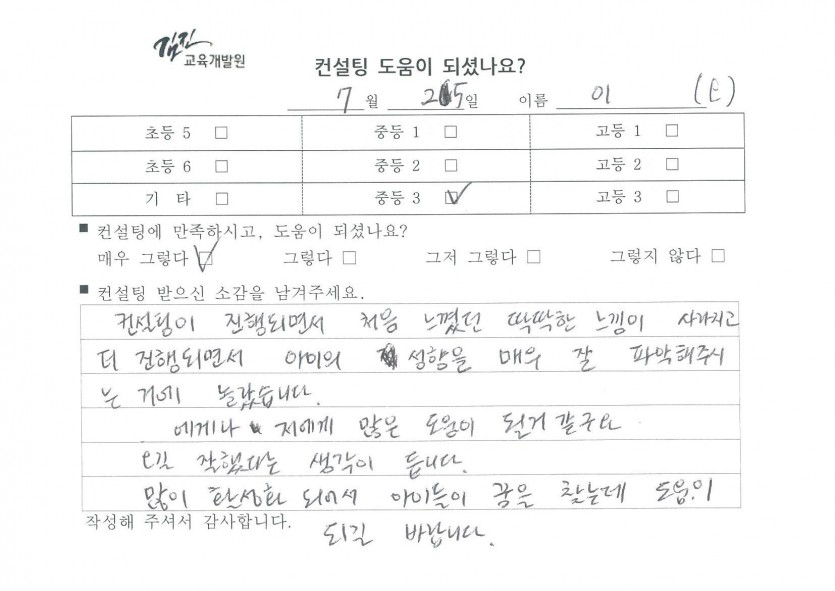 김진
교육개발원
컨설팅 도움이 되셨나요?
7월 25일 이름 이 (모)
초등 5 □ 중등 1 □ 고등 1 □
초등 6 □ 중등 2 □ 고등 2 □
기 타 □ 중등 3 ☑ 고등 3 □
■ 컨설팅에 만족하시고, 도움이 되셨나요?
매우 그렇다 ☑ 그렇다 □ 그저 그렇다 □ 그렇지 않다 □
■ 컨설팅 받으신 소감을 남겨주세요.
컨설팅이 진행되면서 처음 느꼈던 딱딱한 느낌이 사라지고
더 진행되면서 아이의 성향을 매우 잘 파악해주시
는 거에 놀랐습니다.
에게나 저에게 많은 도움이 될거 같구요
오길 잘했다는 생각이 듭니다.
많이 활성화 되어서 아이들이 꿈을 찾는데 도움이
작성해 주셔서 감사합니다.
되길 바랍니다.